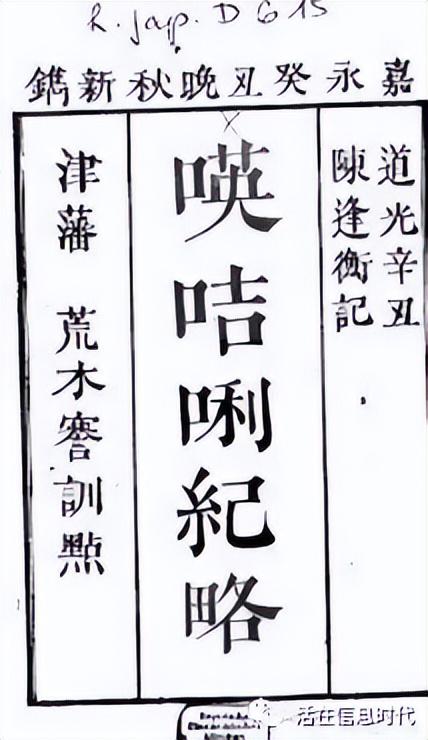 jap. D
嘉永癸丑晚秋新鐫
道光辛丑
陳逢衡記
𠸄咭唎紀略
津藩 荒木謇訓點
活在信息时代